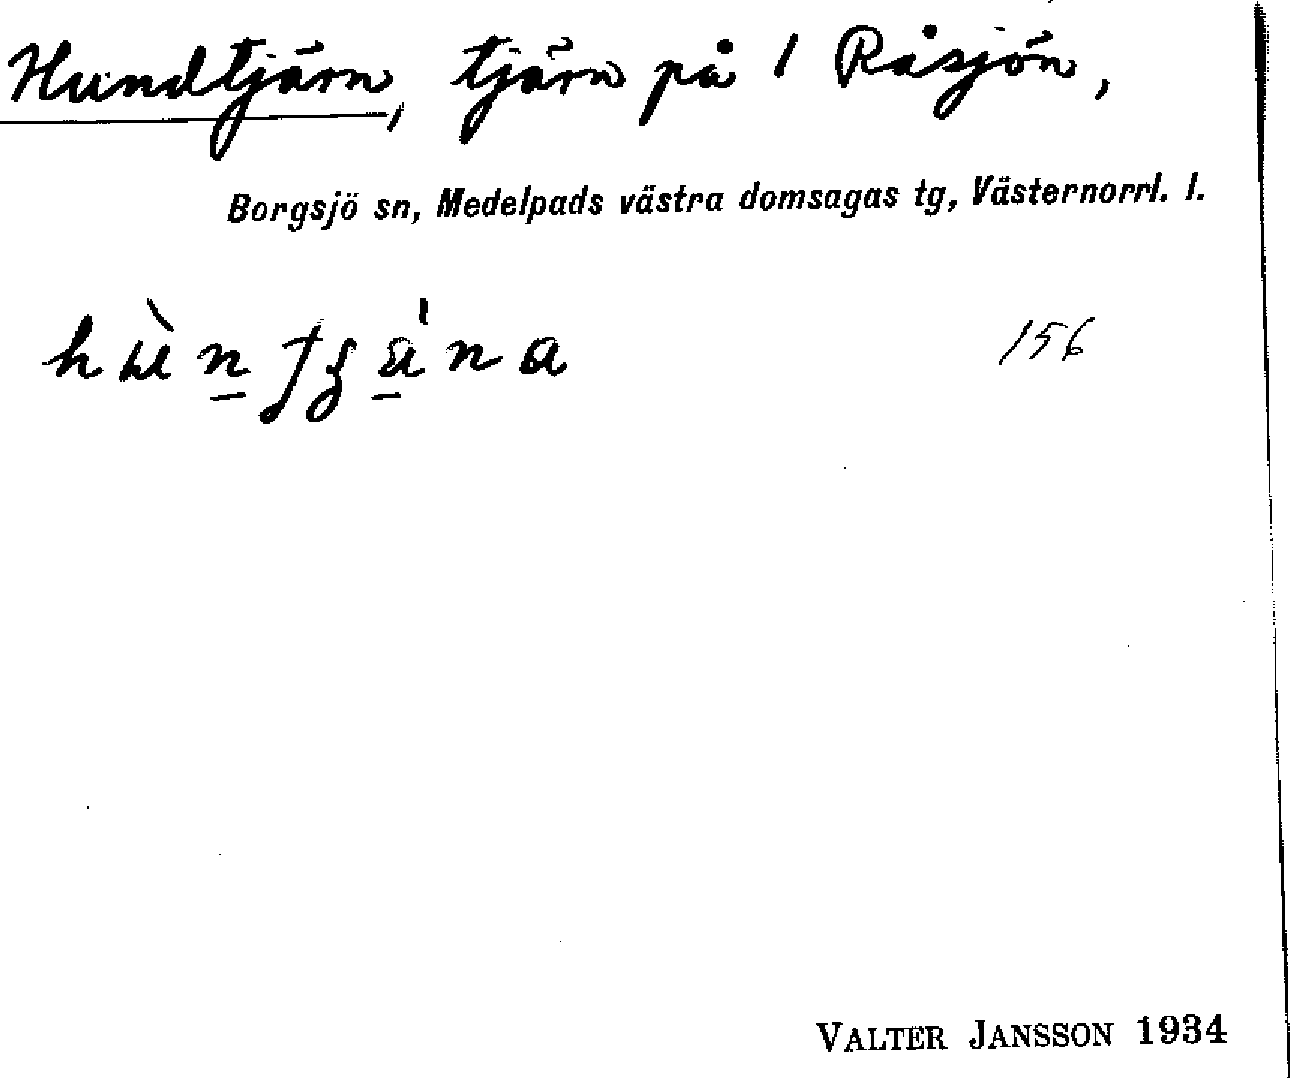 Hundtjärn, tjärn på 1 Råsjön,
Borgsjö sn, Medelpads västra domsagas tg, Västernorrl. l.
156
VALTER JANSSON 1934